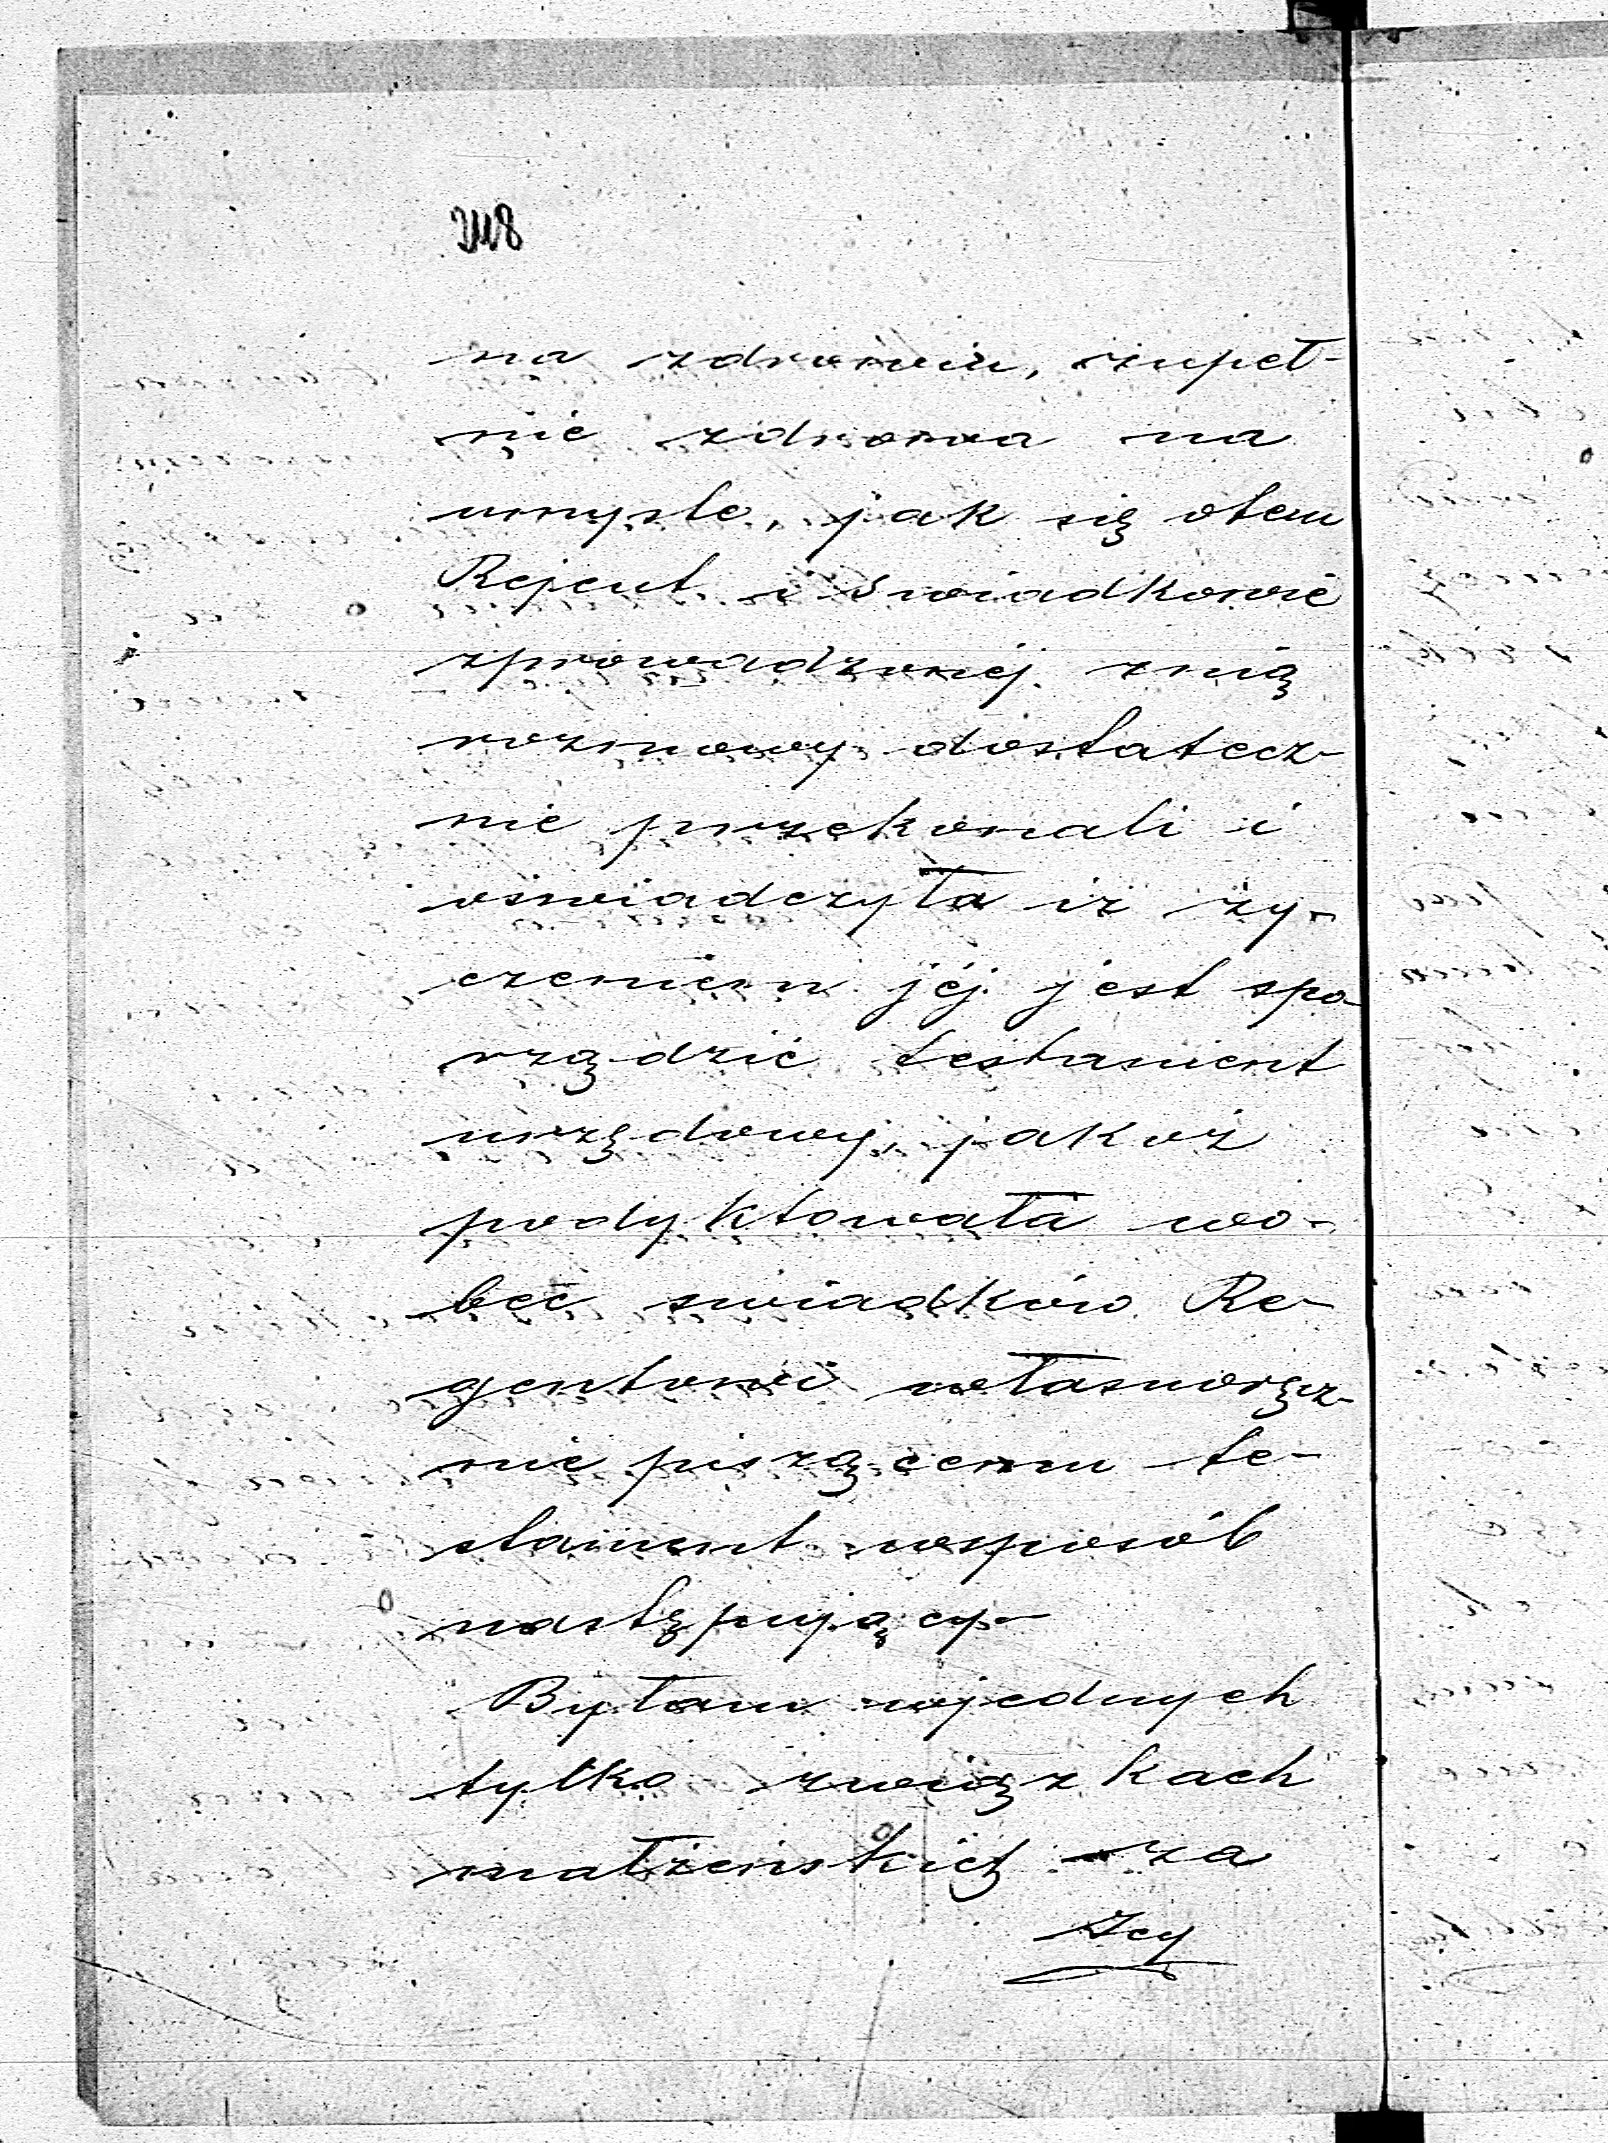 na zdrowiu, zupeł-
nie zdrowa na
umyśle, jak się otem
Rejent i świadkowie
zprowadzonéj znią
rozmowy dostatecz-
nie przekonali i
oświadczyła iż ży-
czeniem jéj jest spo-
rządzić testament
urzędowy, jakoż
podyktowała wo-
beć świadków Re-
gentowi własnoręcz-
nie piszącemu te-
stament wsposób
następujący-
Byłam wjednych
tylko związkach
małżeńskich za